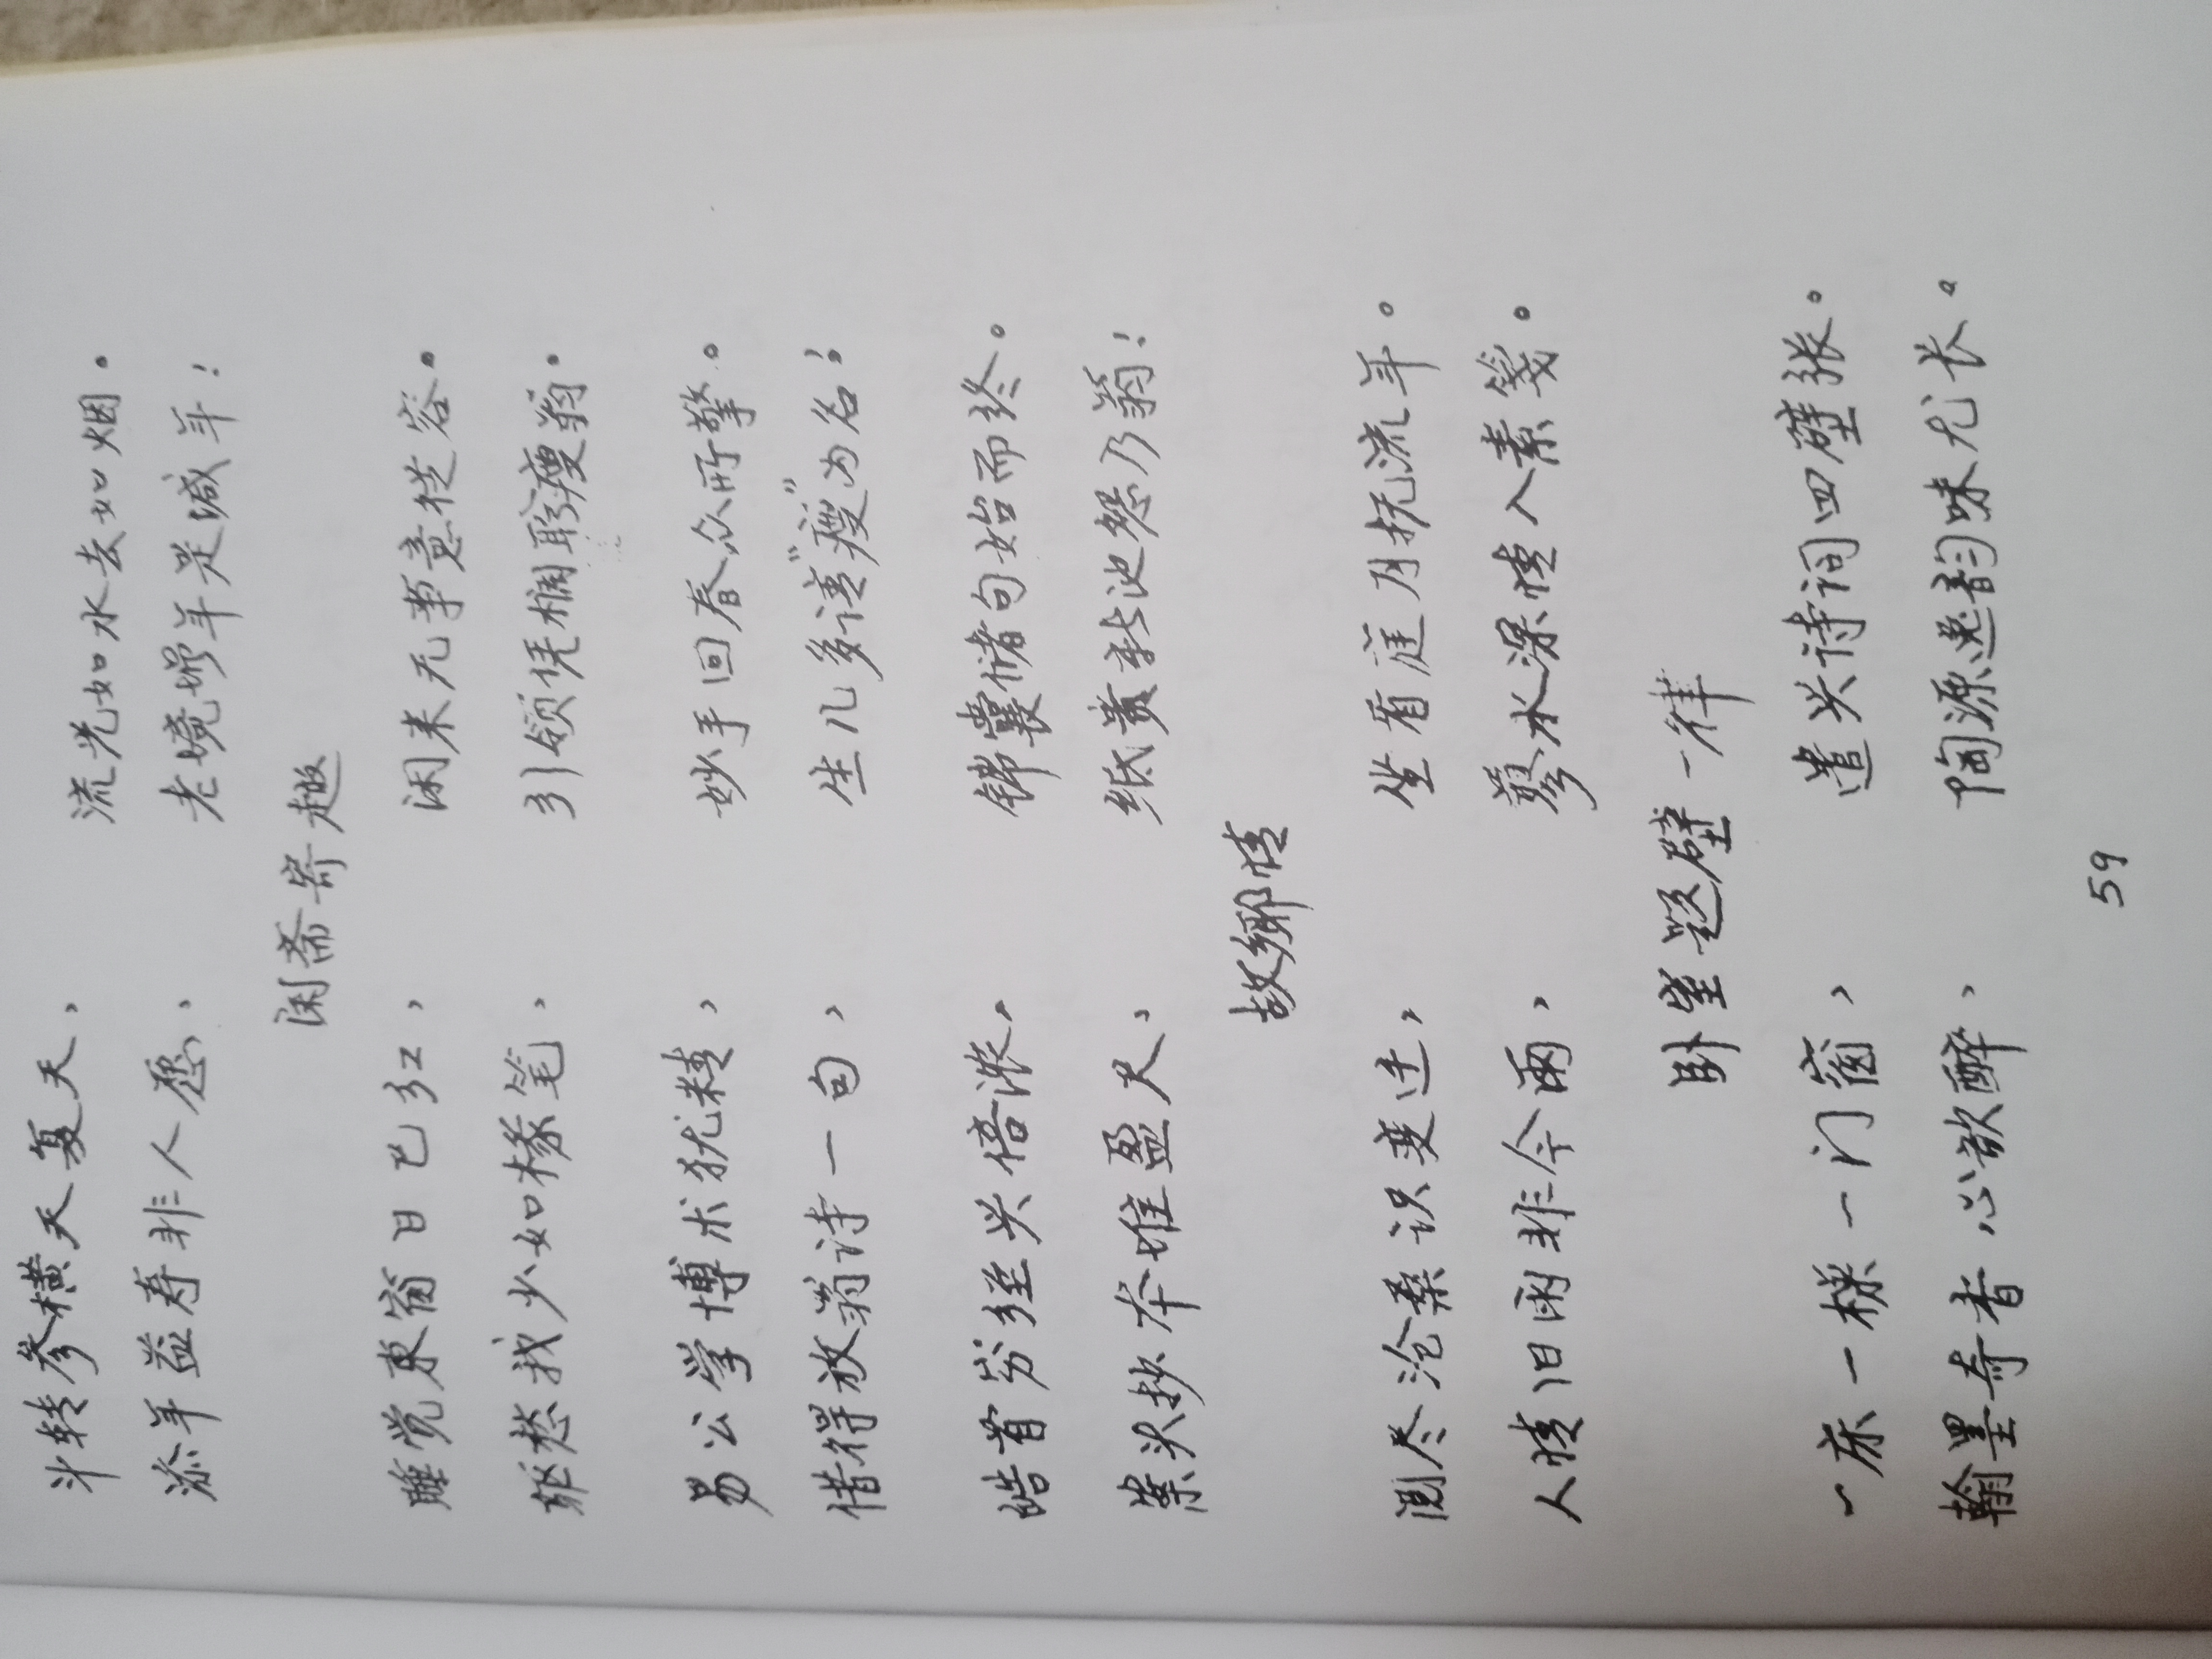 斗转参横天复天，流光如水去如烟。
添年益寿非人愿，老境增年是减年！
闲斋寄趣
睡觉东窗日已红，闲来无事意从容。
驱愁找少如椽笔，引领凭栏聆瘦翁。
易公学博术犹精，妙手回春众所擎。
借得放翁诗一句，生儿多读“瘦”为名；
皓首穷经兴倍浓，锦囊储句始而终。
案头抄本堆盈尺，纸贵秋池怨乃翁！
故乡情
阅尽沧桑识变迁，坐看庭月抚流年。
人情旧雨非今雨，蓼水深情入素笺。
卧室题壁一律
一床一榻一门窗，遣兴诗词四壁张。
翰墨奇香心欲醉，陶源逸韵味尤长。
59